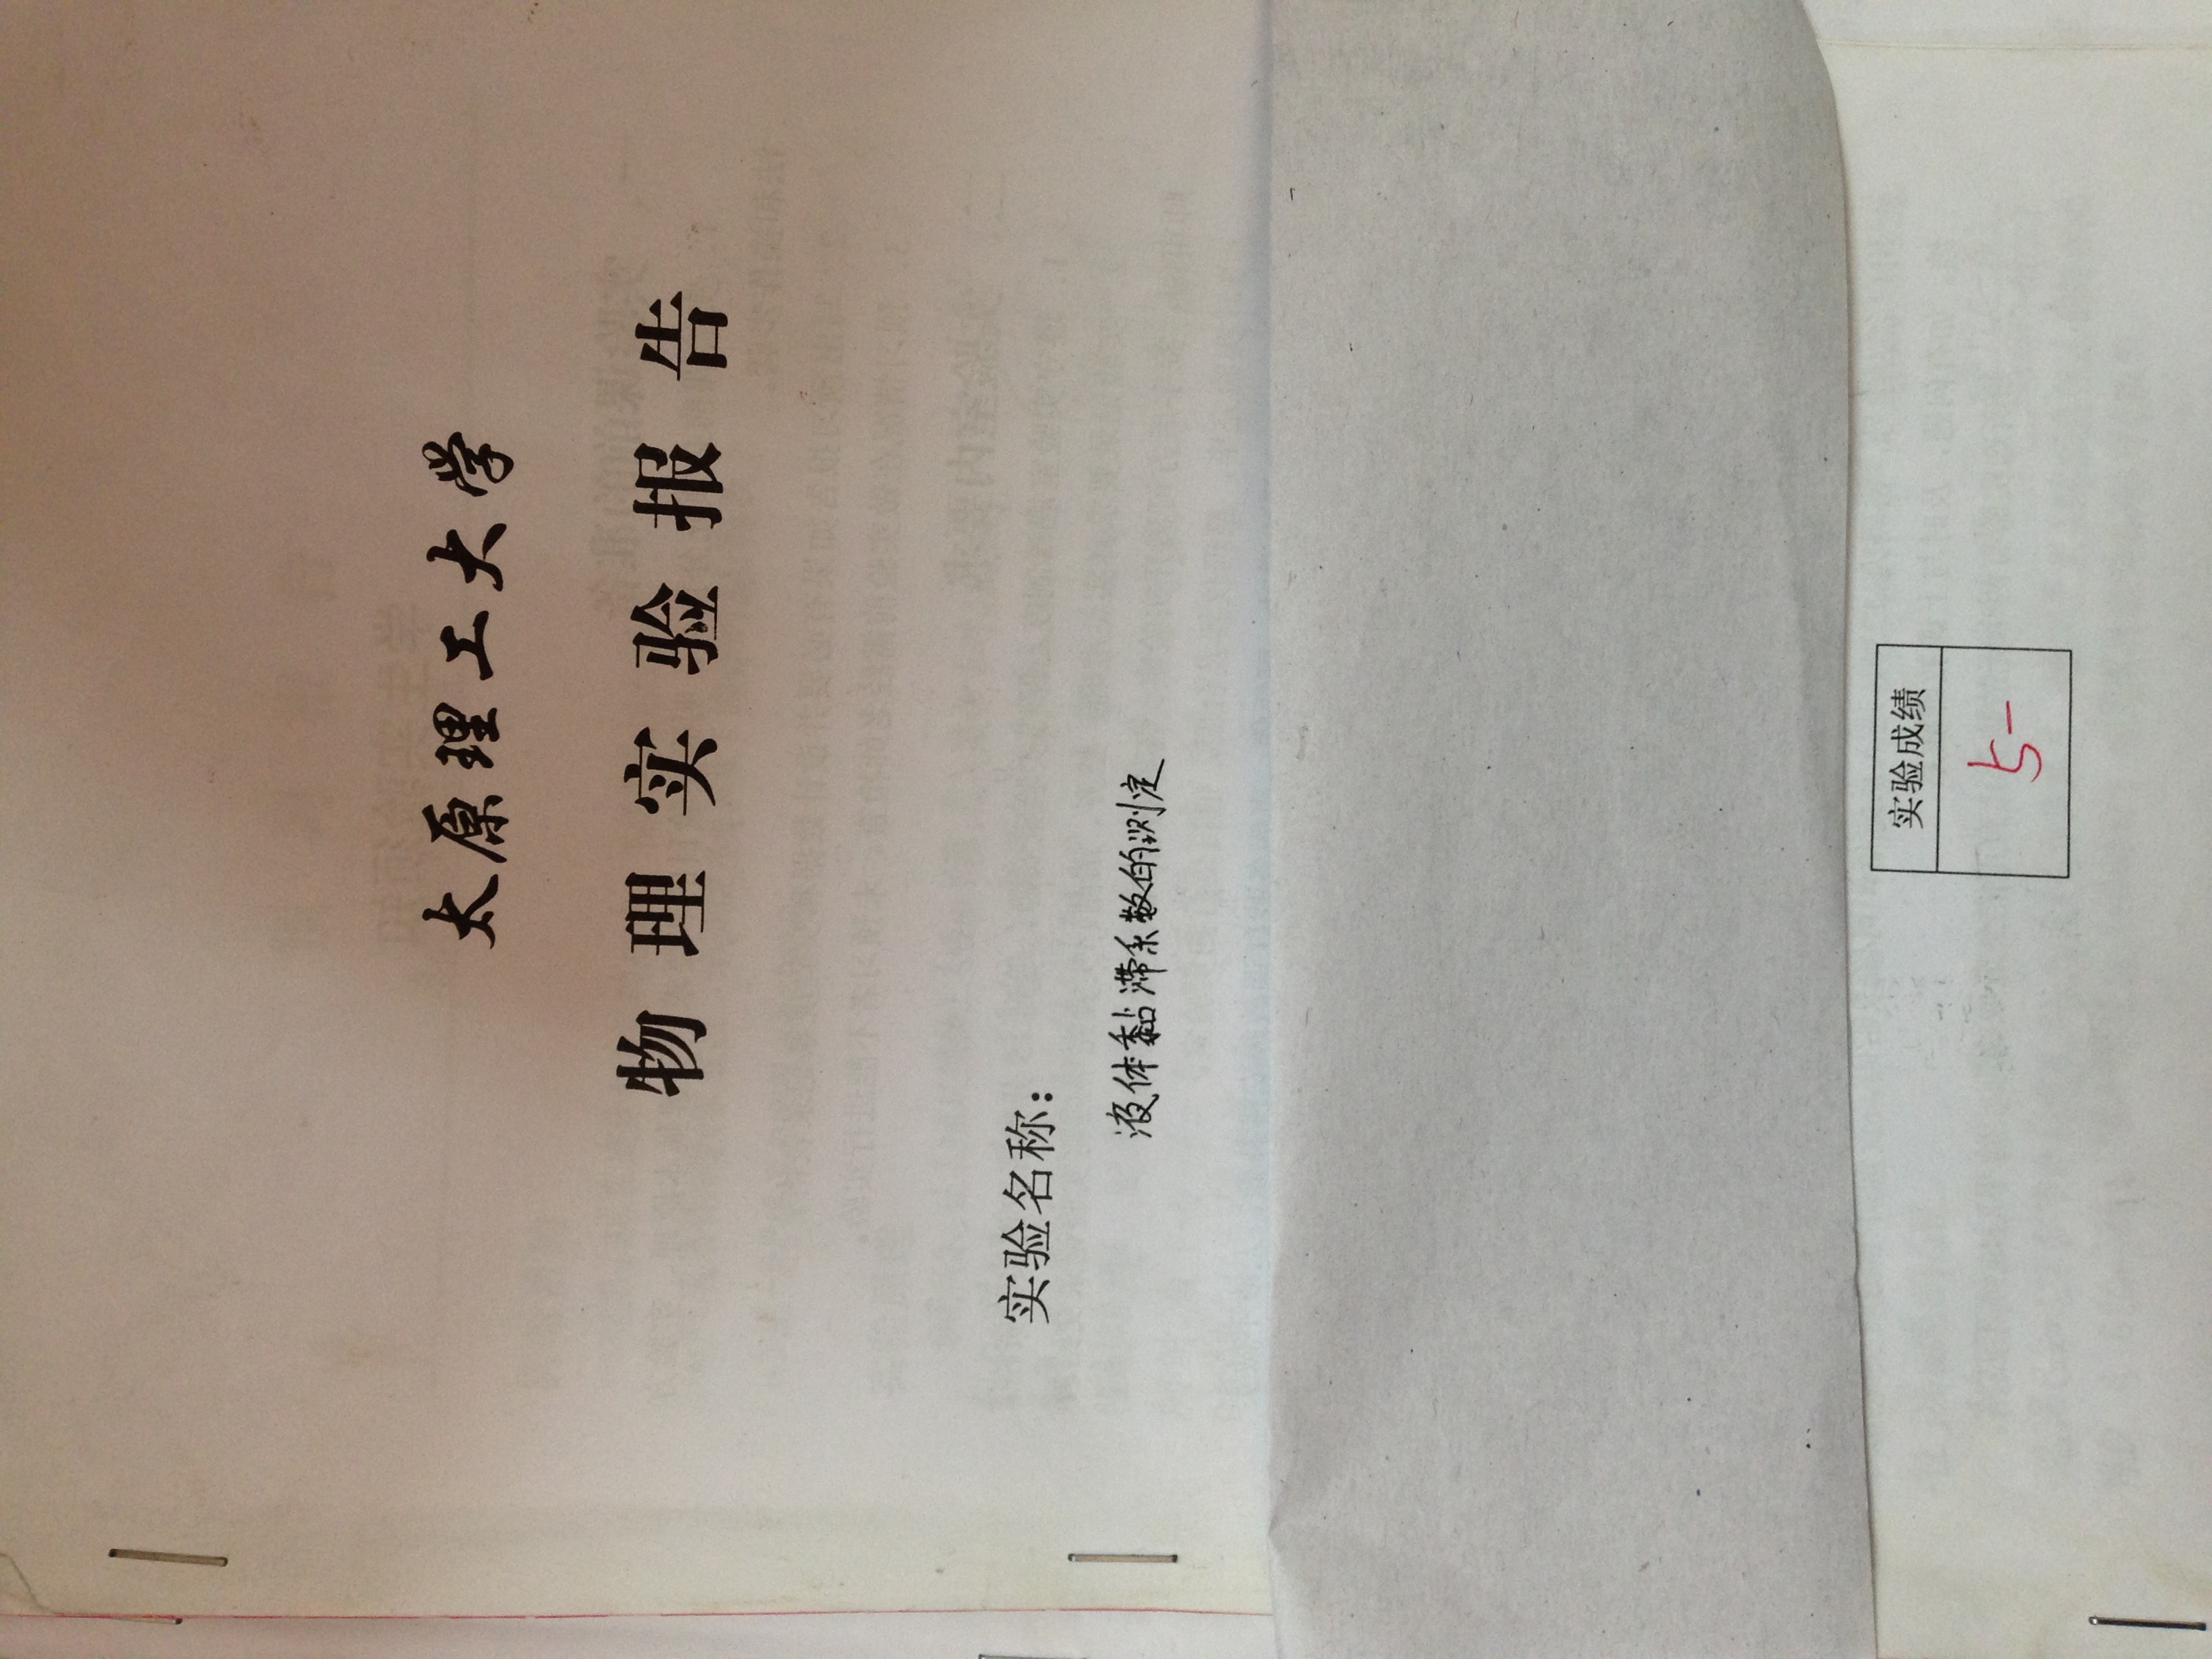 太原理工大学
物理实验报告
实验名称：
液体黏滞系数的测定
实验成绩
5-